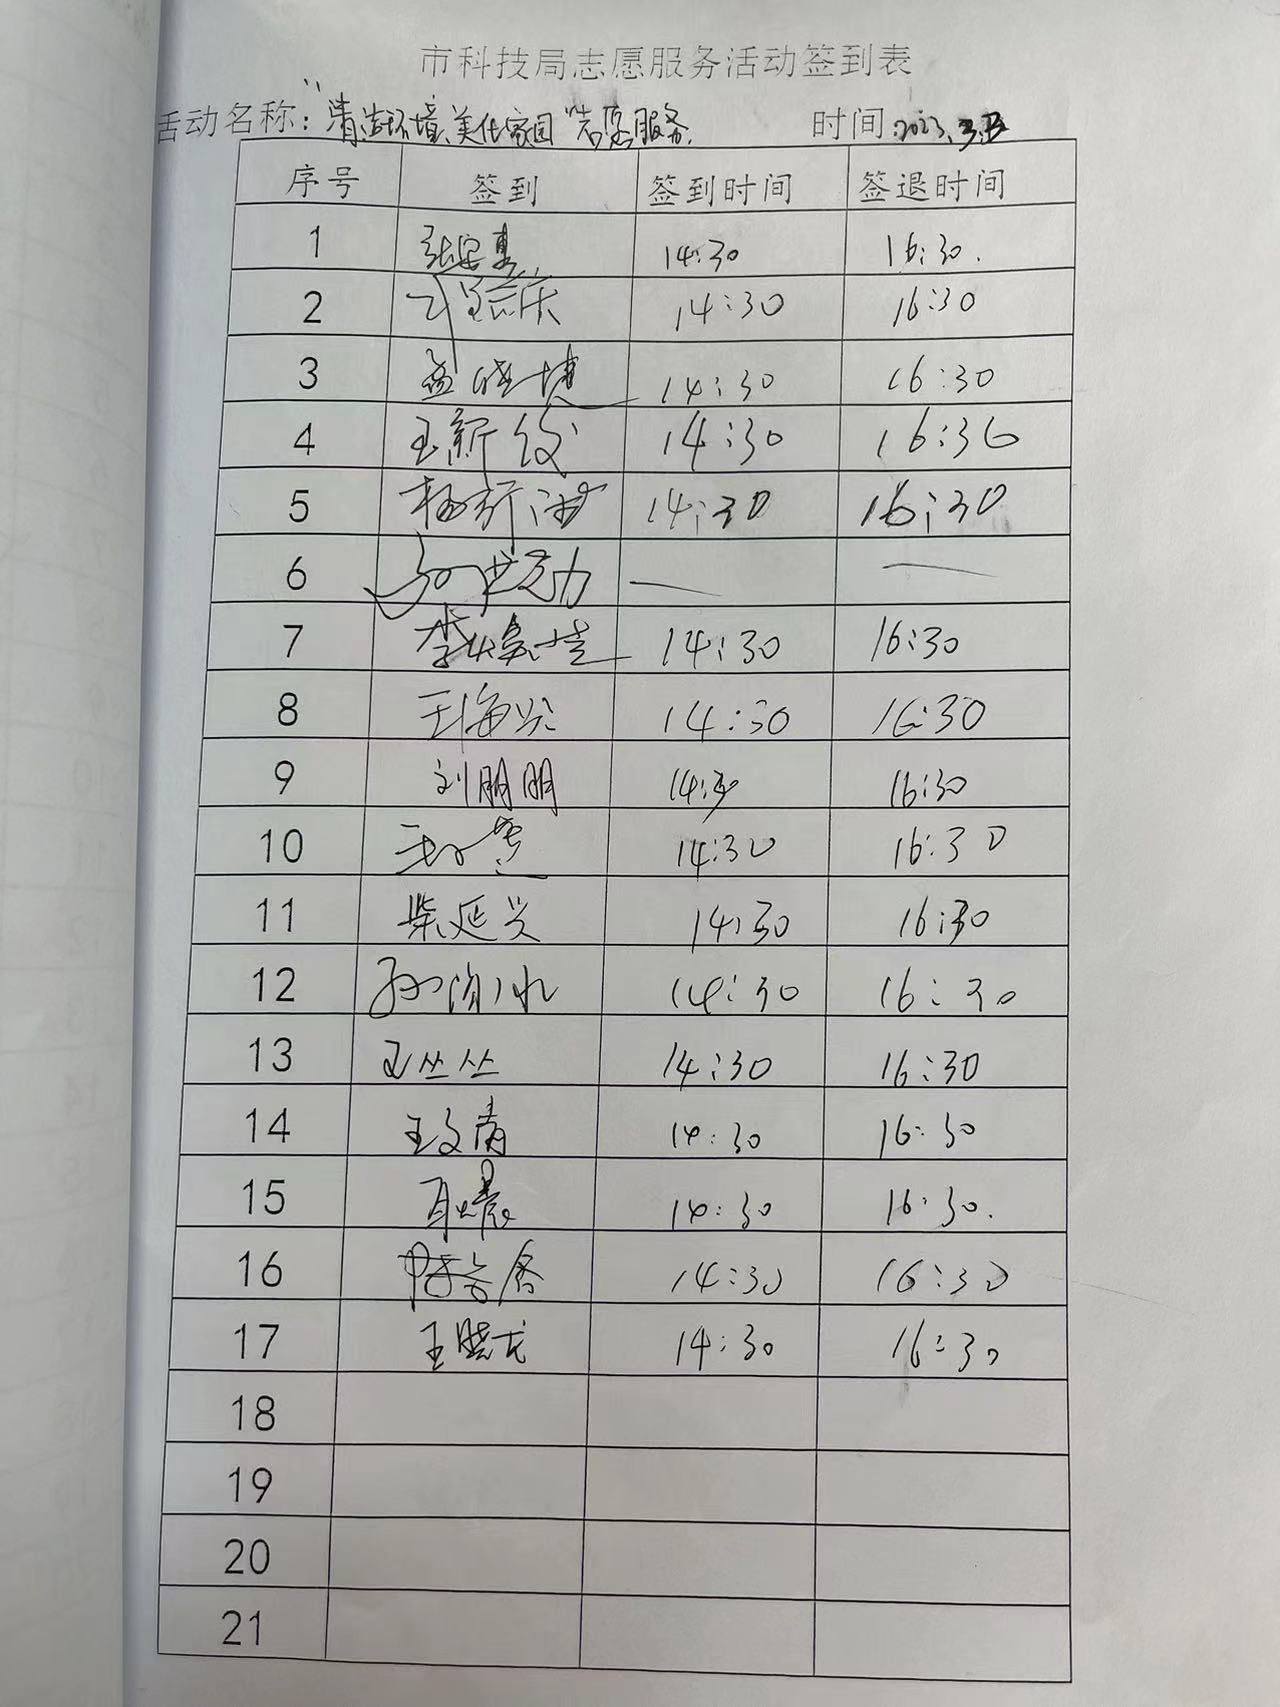 市科技局志愿服务活动签到表
活动名称："清洁环境、美化家园"志愿服务 时间:2023.3.
序号 签到 签到时间 签退时间
1 14:30 16:30.
2 14:30 16:30
3 孟晓博 14:30 16:30
4 王新 14:30 16:30
5 14:30 16:30
6 — —
7 李 14:30 16:30
8 王海 14:30 16:30
9 刘朋朋 14:30 16:30
10 14:30 16:30
11 柴延兴 14:30 16:30
12 14:30 16:30
13 王丛丛 14:30 16:30
14 王文 14:30 16:30
15 14:30 16:30.
16 14:30 16:30
17 王晓龙 14:30 16:30
18
19
20
21